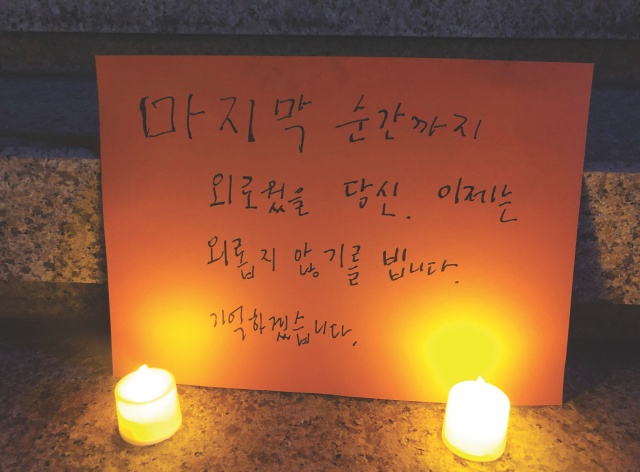 마지막 순간까지
외로웠을 당신. 이제는
외롭지 않기를 빕니다.
기억하겠습니다.